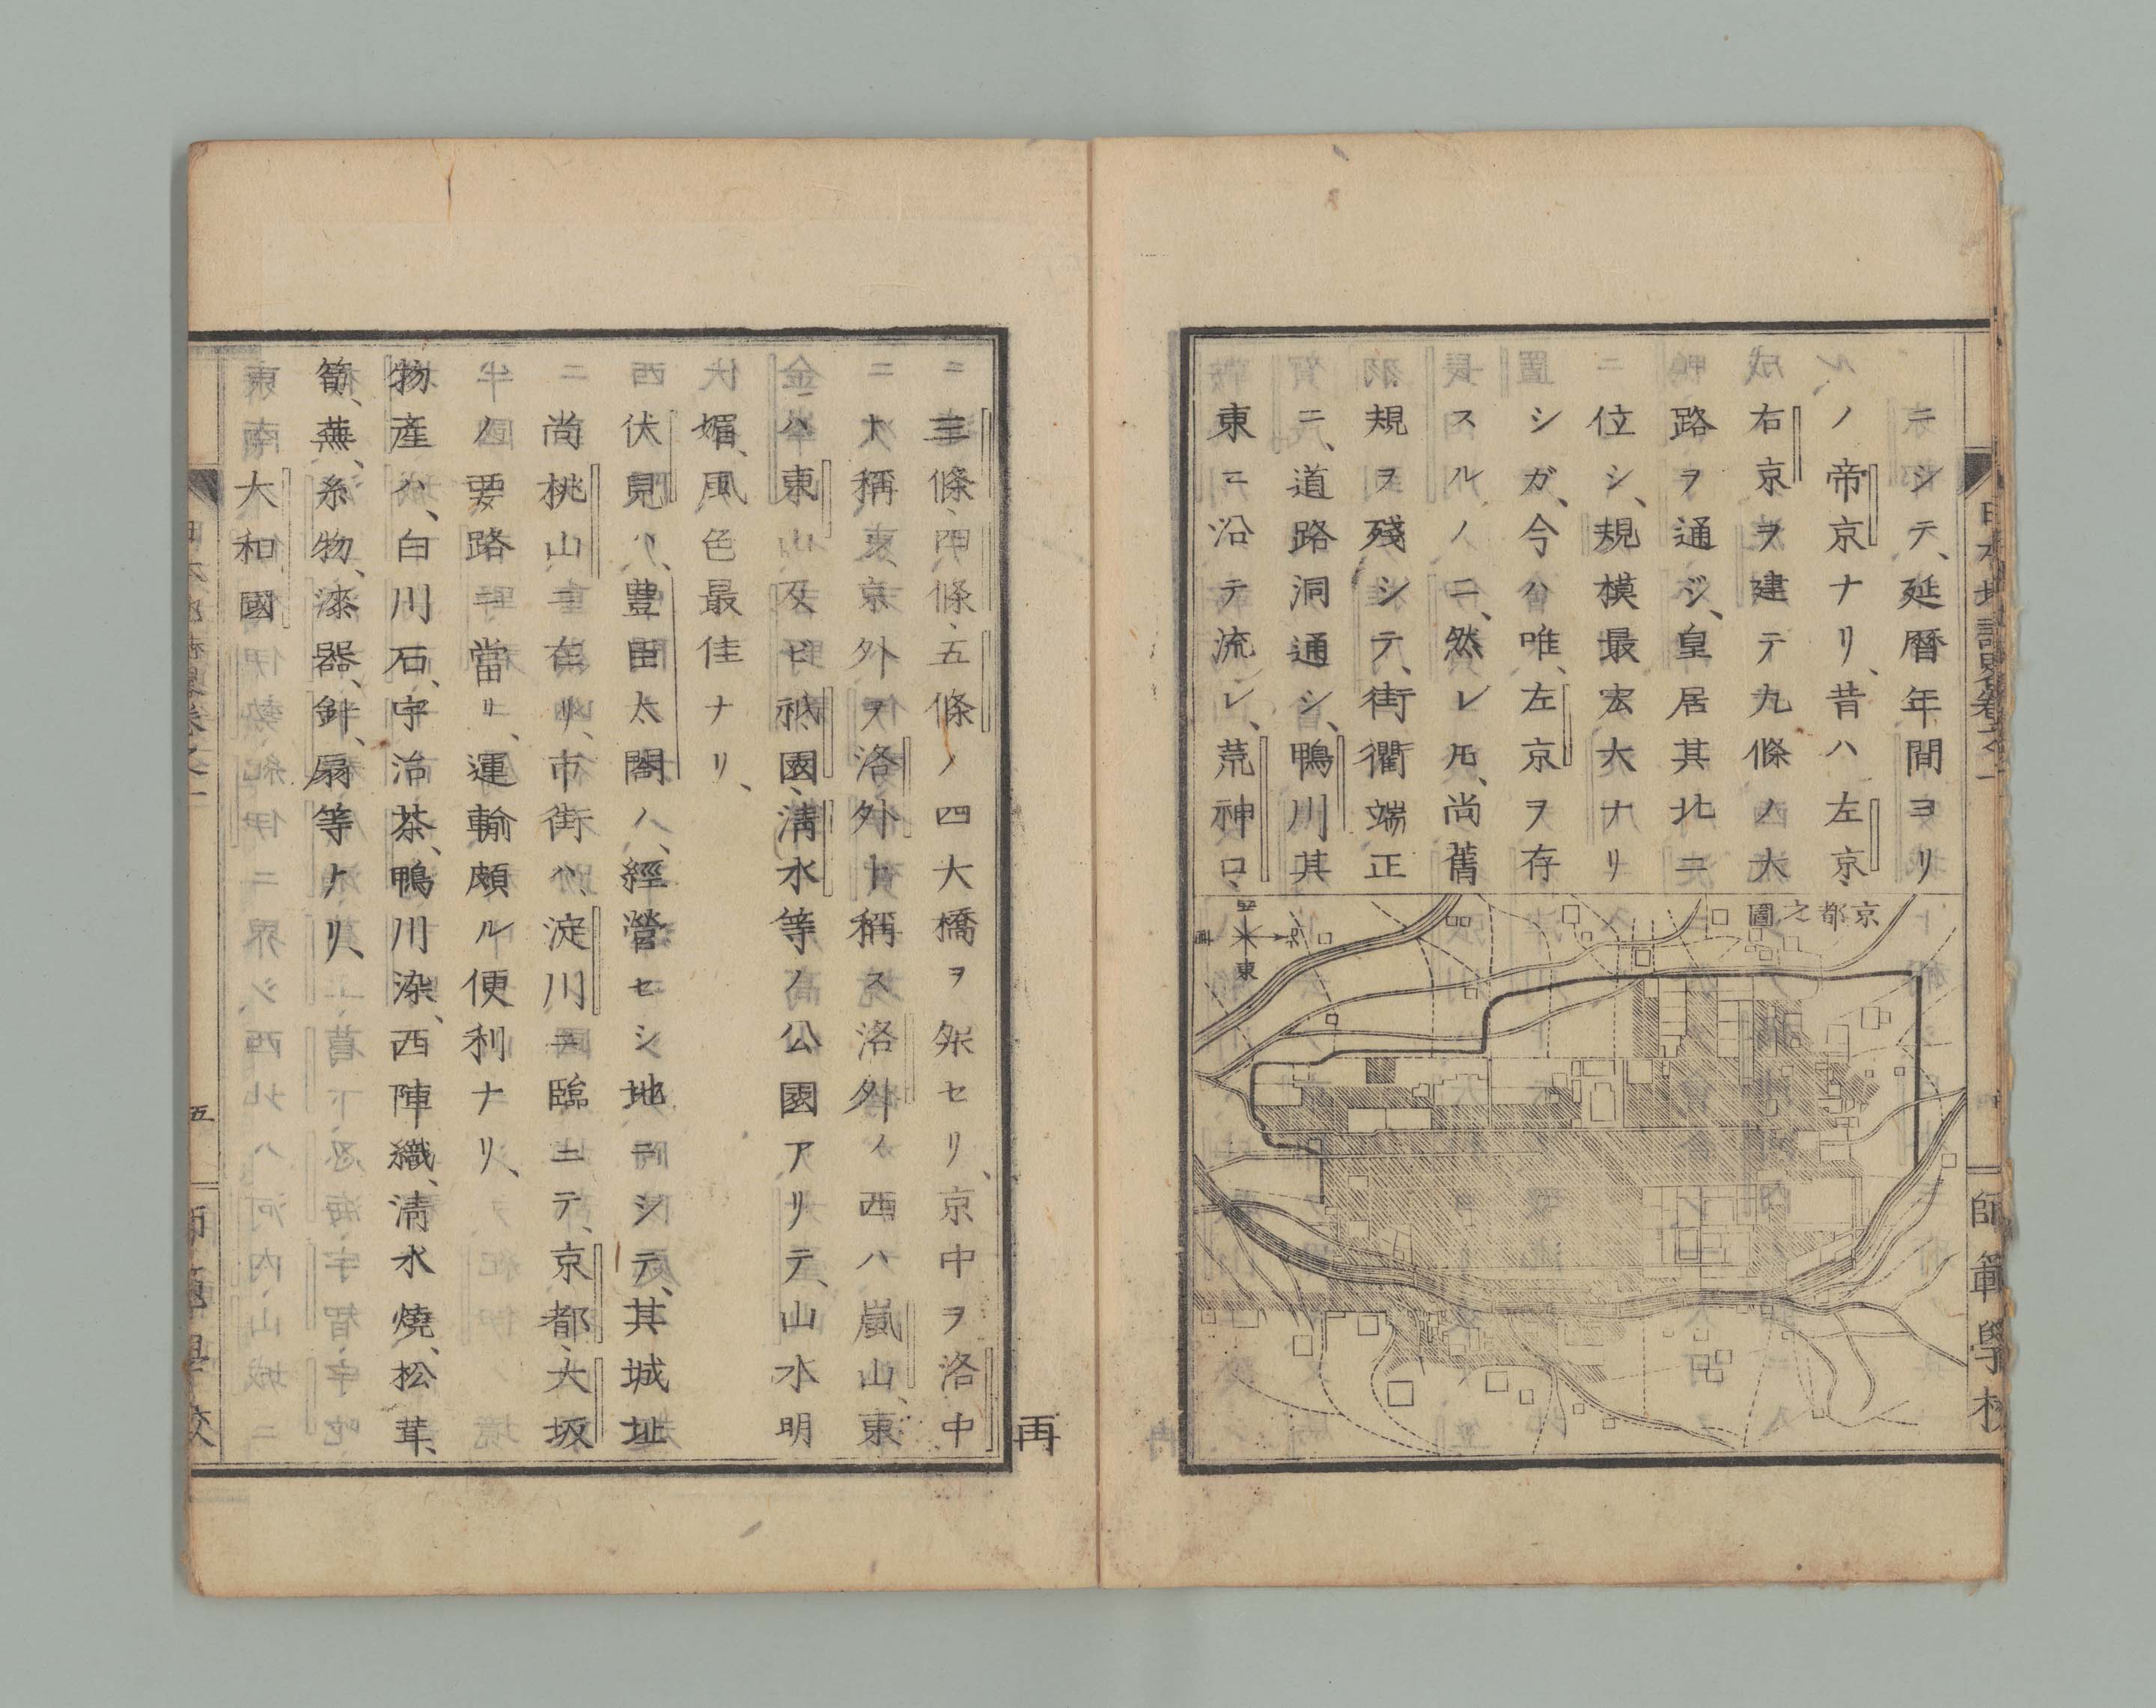 ニシテ、延暦年間ヨリ
ノ帝京ナリ、昔ハ左京、
右京ヲ建テ九條ノ大
路ヲ通ジ、皇居其北ニ
位シ、規模最宏大ナリ
シガ、今ハ唯、左京ヲ存
スルノミ、然レ𪜈、尚舊
規ヲ殘シテ、街衢端正
ニ、道路洞通シ、鴨川其
東ニ沿テ流レ、荒神口、
京都之圖
東
師範學校
ニ三條、四條、五條ノ四大橋ヲ架セリ、京中ヲ洛中
ト稱、京外ヲ洛外ト稱ス洛外ノ西ハ嵐山、東
ハ東山及ビ祇園、淸水等ノ公園アリテ、山水明
媚、風色最佳ナリ、
伏見ハ、豊臣太閤ノ、經營セシ地ニシテ、其城址
尚桃山ニ在リ、市街ハ、淀川ニ臨ミテ、京都、大坂
ノ要路ニ當リ、運輸頗ル便利ナリ、
物產ハ、白川石、宇治茶、鴨川染、西陣織、淸水燒、松茸、
筍、蕪、糸物、漆器、針、扇等ナリ、
大和國
五
再